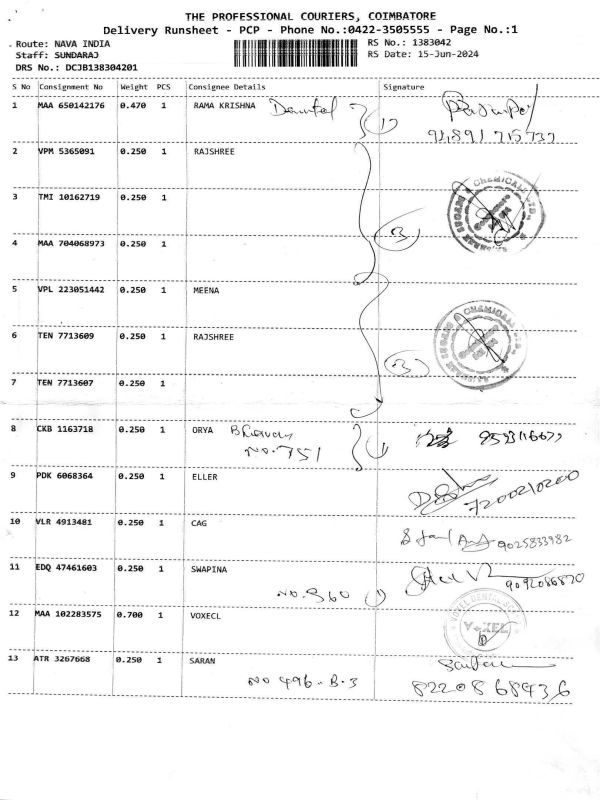 THE PROFESSIONAL COURIERS, COIMBATORE
Delivery Runsheet - PCP - Phone No.:0422-3505555 - Page No.:1
Route: NAVA INDIA RS No.: 1383042
Staff: SUNDARAJ RS Date: 15-Jun-2024
DRS No.: DCJB138304201
S No Consignment No Weight PCS Consignee Details Signature
1 MAA 650142176 0.470 1 RAMA KRISHNA
2 VPM 5365091 0.250 1 RAJSHREE
3 TMI 10162719 0.250 1
4 MAA 704068973 0.250 1
3
5 VPL 223051442 0.250 1 MEENA
6 TEN 7713609 0.250 1 RAJSHREE
3
7 TEN 7713607 0.250 1
8 CKB 1163718 0.250 1 ORYA
NO. 751
9 PDK 6068364 0.250 1 ELLER
7200210200
10 VLR 4913481 0.250 1 CAG
9025833982
11 EDQ 47461603 0.250 1 SWAPINA
NO. 360 1
12 MAA 102283575 0.700 1 VOXECL
VOXEL
13 ATR 3267668 0.250 1 SARAN
NO 496-B.3 8220868436